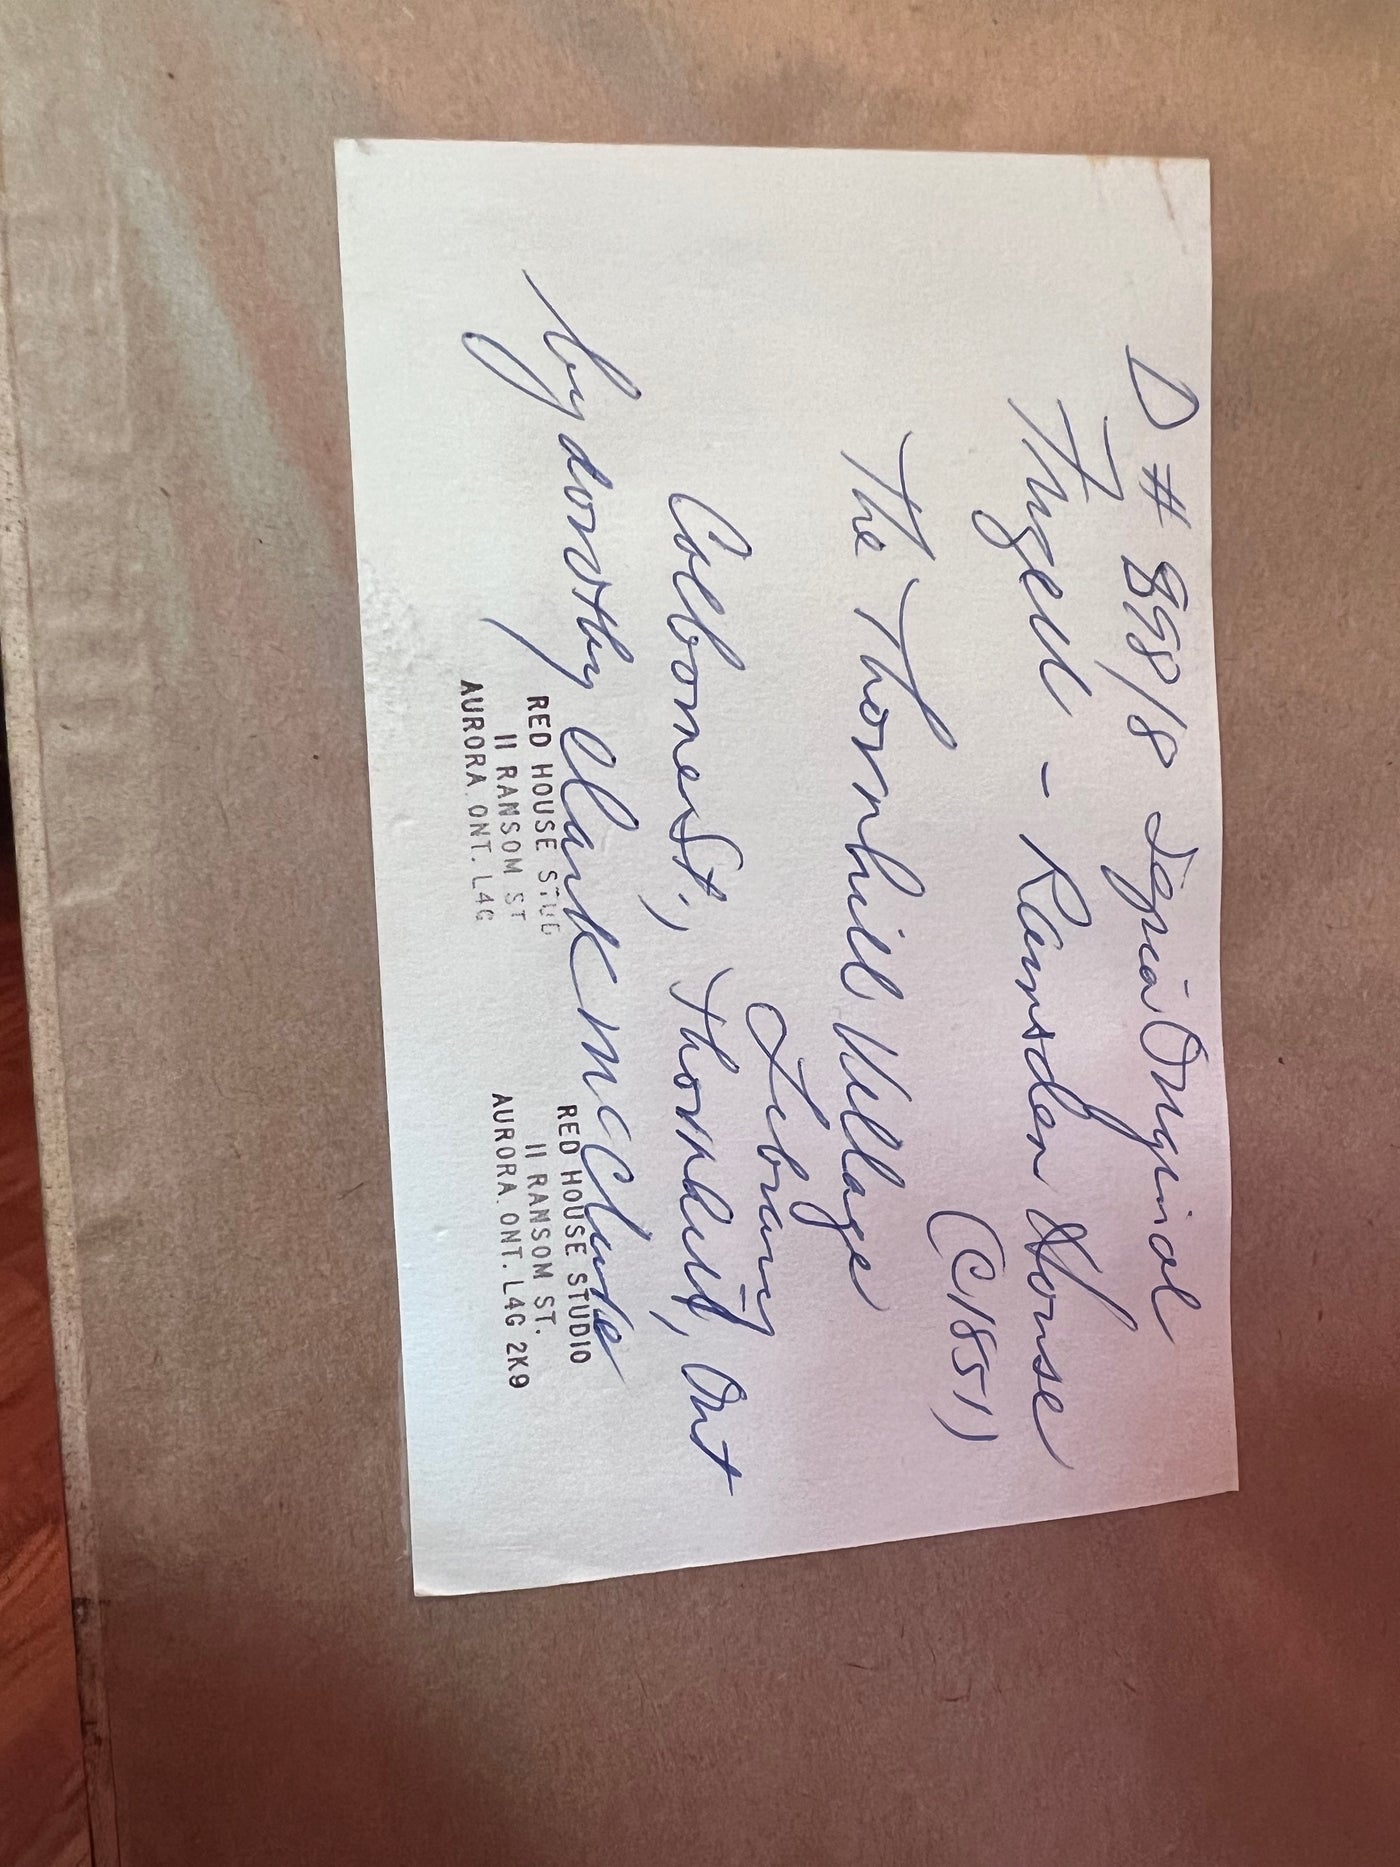 D # 898/8 Sepia Original
Thrgell - Ramsden House
(C1851)
The Thornhill Village
Library
Colborne St., Thornhill, Ont
by dorothy Clark McClure
RED HOUSE STUD
11 RANSOM ST
AURORA. ONT. L4G
RED HOUSE STUDIO
11 RANSOM ST.
AURORA. ONT. L4G 2K9